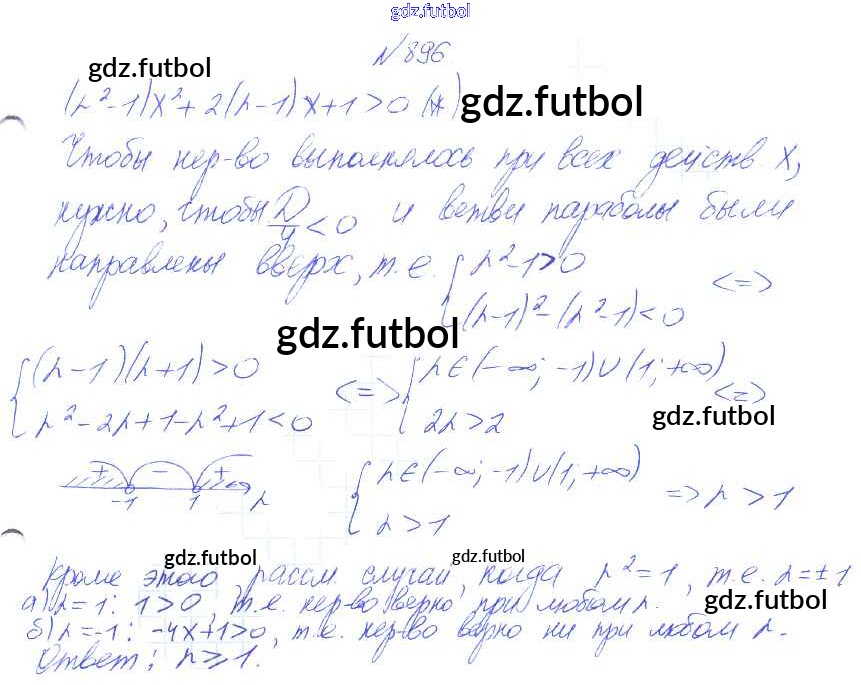 gdz.futbol
№ 896.
gdz.futbol
(r²-1)x²+2(r-1)x+1>0 (*)
gdz.futbol
Чтобы нер-во выполнялось при всех действ x,
нужно, чтобы D/4<0 и ветви параболы были
направлены вверх, т.е. { r²-1>0
(r-1)²-(r²-1)<0 <=>
gdz.futbol
{ (r-1)(r+1)>0
r²-2r+1-r²+1<0 <=> { r∈(-∞; -1)∪(1; +∞)
2r>2 <=>
gdz.futbol
+ - +
-1 1 r
{ r∈(-∞; -1)∪(1; +∞)
r>1 => r>1
gdz.futbol
gdz.futbol
Кроме этого, рассм. случаи, когда r²=1, т.е. r=±1
gdz.futbol
а) r=1: 1>0, т.е. нер-во верно при любом r.
б) r=-1: -4x+1>0, т.е. нер-во верно ни при любом r.
Ответ: r⩾1.